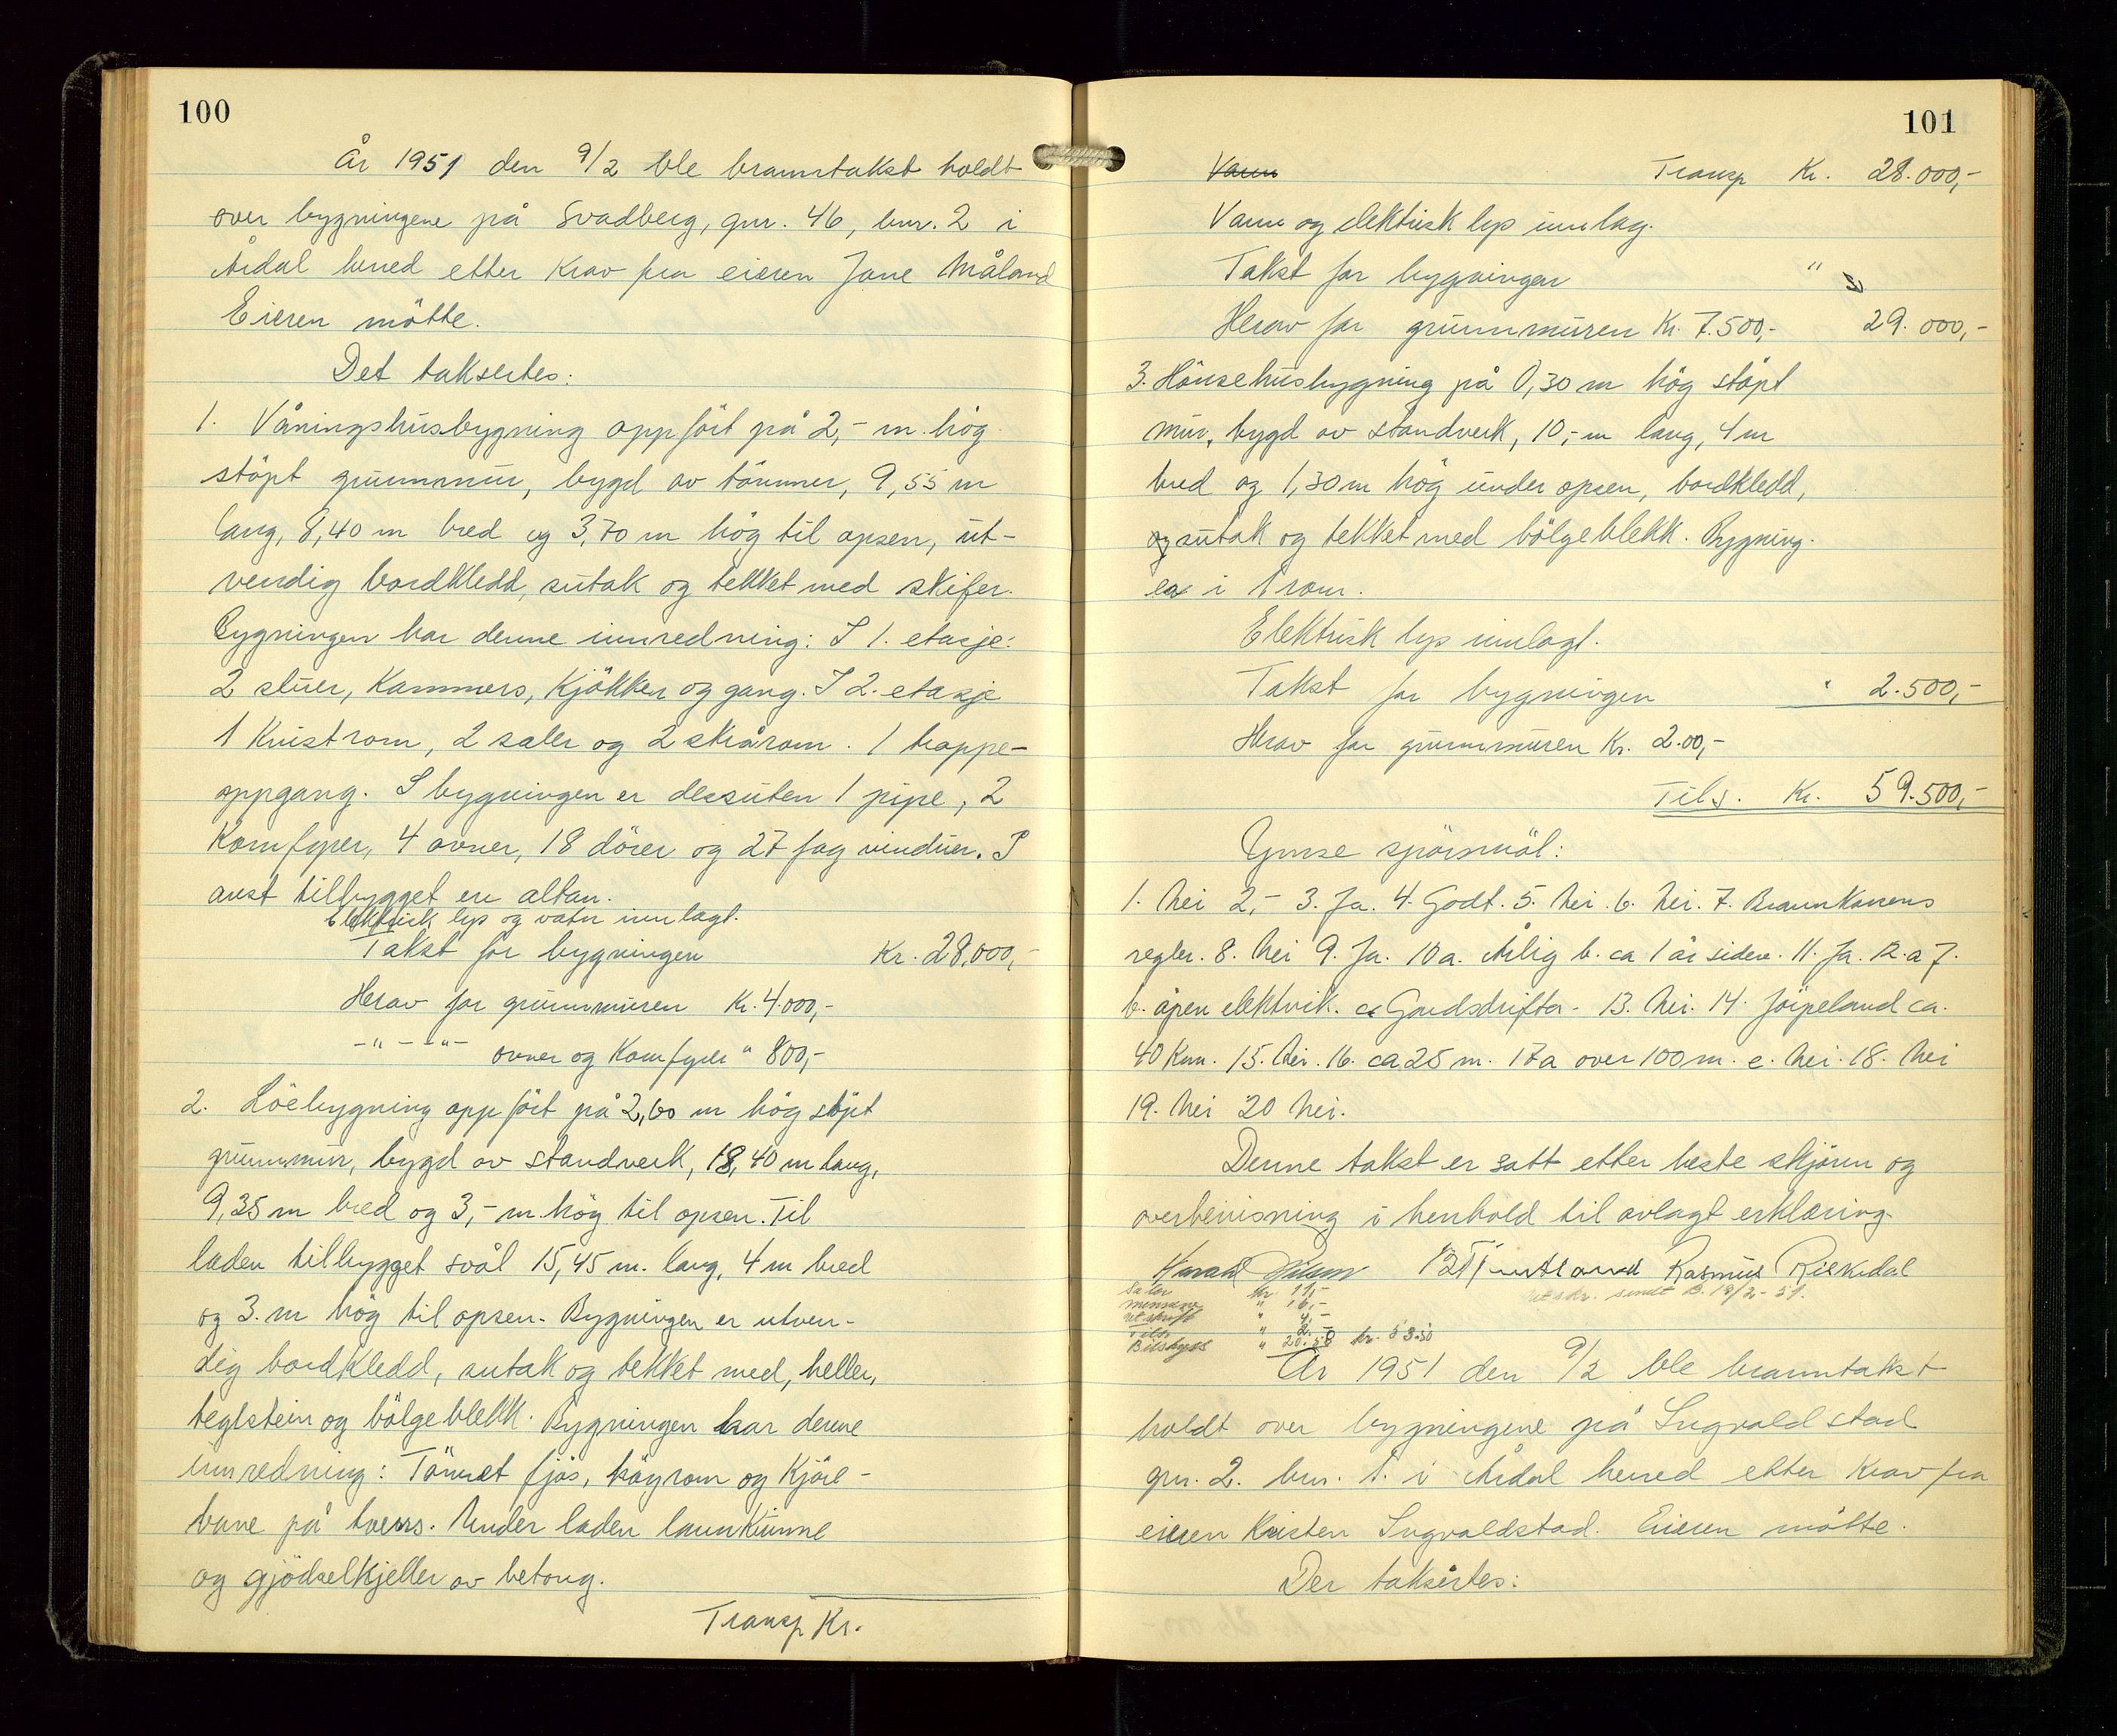 100
År 1951 den 9/2 ble branntakst holdt
over bygningene på Svadberg, gnr. 46, bnr. 2 i
Årdal herred etter krav fra eieren Jane Måland
Eieren mötte.
Det taksertes:
1. Våningshusbygning oppfört på 2,- m. hög
stöpt grunnmur, bygd av tömmer, 9,55 m
lang, 8,40 m bred og 3,70 m hög til opsen, ut-
vendig bordkledd, sutak og tekket med skifer.
Bygningen har denne innredning: I 1. etasje:
2 stuer, Kammers, Kjökken og gang. I 2. etasje
1 Kvistrom, 2 saler og 2 skrårom. 1 trappe-
oppgang. I bygningen er dessuten 1 pipe, 2
Komfyrer, 4 ovner, 18 dörer og 27 fag vinduer. I
aust tilbygget en altan.
Elektrisk lys og vatn innlagt.
Takst for bygningen Kr. 28.000,-
Herav for grunnmuren Kr. 4.000,-
-"- -"- ovner og Komfyrer " 800,-
2. Löebygning oppfört på 2,60 m hög stöpt
grunnmur, bygd av standverk, 18,40 m lang,
9,35 m bred og 3,- m. hög til opsen. Til
laden tilbygget svål 15,45 m. lang, 4 m bred
og 3. m hög til opsen. Bygningen er utven-
dig bordkledd, sutak og tekket med, heller,
teglstein og bölgeblekk. Bygningen har denne
innredning: Tömret fjös, högrom og Kjöre-
bane på tvers. Under laden
og gjödselkjeller av betong.
Transp Kr.
101
Vann Transp Kr. 28.000,-
Vann og elektrisk lys innlag.
Takst for bygningen "
Herav for grunnmuren Kr. 7.500,- 29.000,-
3. Hönsehusbygning på 0,30 m hög stöpt
mur, bygd av standverk, 10,- m lang, 4 m
bred og 1,30 m hög under opsen, bordkledd,
og sutak og tekket med bölgeblekk. Bygning.
en i 1 rom.
Elektrisk lys innlagt.
Takst for bygningen " 2.500,-
Herav for grunnmuren Kr. 2.00,-
Tils. Kr. 59.500,-
Ymse spörsmål:
1. Nei 2,- 3. Ja. 4. Godt. 5. Nei. 6. Nei. 7. Brannkassens
regler. 8. Nei 9. Ja. 10 a. Årlig b. ca 1 år siden. 11. Ja. 12. a 7.
b. åpen elektrik. c. Gardsdrifta - 13. Nei. 14. Jörpeland ca.
40 Km. 15. Nei. 16. ca 25 m. 17a over 100 m. e. Nei. 18. Nei
19. Nei 20 Nei.
Denne takst er satt etter beste skjönn og
overbevisning i henhold til avlagt erklæring.
Rasmus Riskedal
Kr. 11,-
utskr. sendt B. 18/2-51.
" 16,-
utskrift " 4,-
Tils. " 2.-
Bilskyss " 20.50 kr. 53.50
År 1951 den 9/2 ble branntakst
holdt over bygningene på Ingvaldstad
gnr. 2. bnr. 1. i Årdal herred etter krav fra
eieren Kristen Ingvaldstad. Eieren mötte.
Der taksertes: